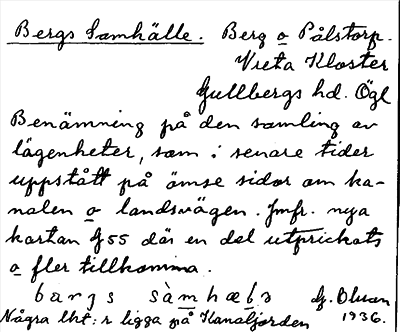 Bergs Samhälle. Berg o Pålstorp.
Vreta Kloster
Gullbergs hd. Ögl
Benämning på den samling av
lägenheter, som i senare tider
uppstått på ömse sidor om ka-
nalen o landsvägen. Jmfr. nya
kartan G 55 där en del utprickats
o fler tillkomma.
bargs sàmhæbə G. Olsson
Några lht:r ligga på Kanaljorden 1936.